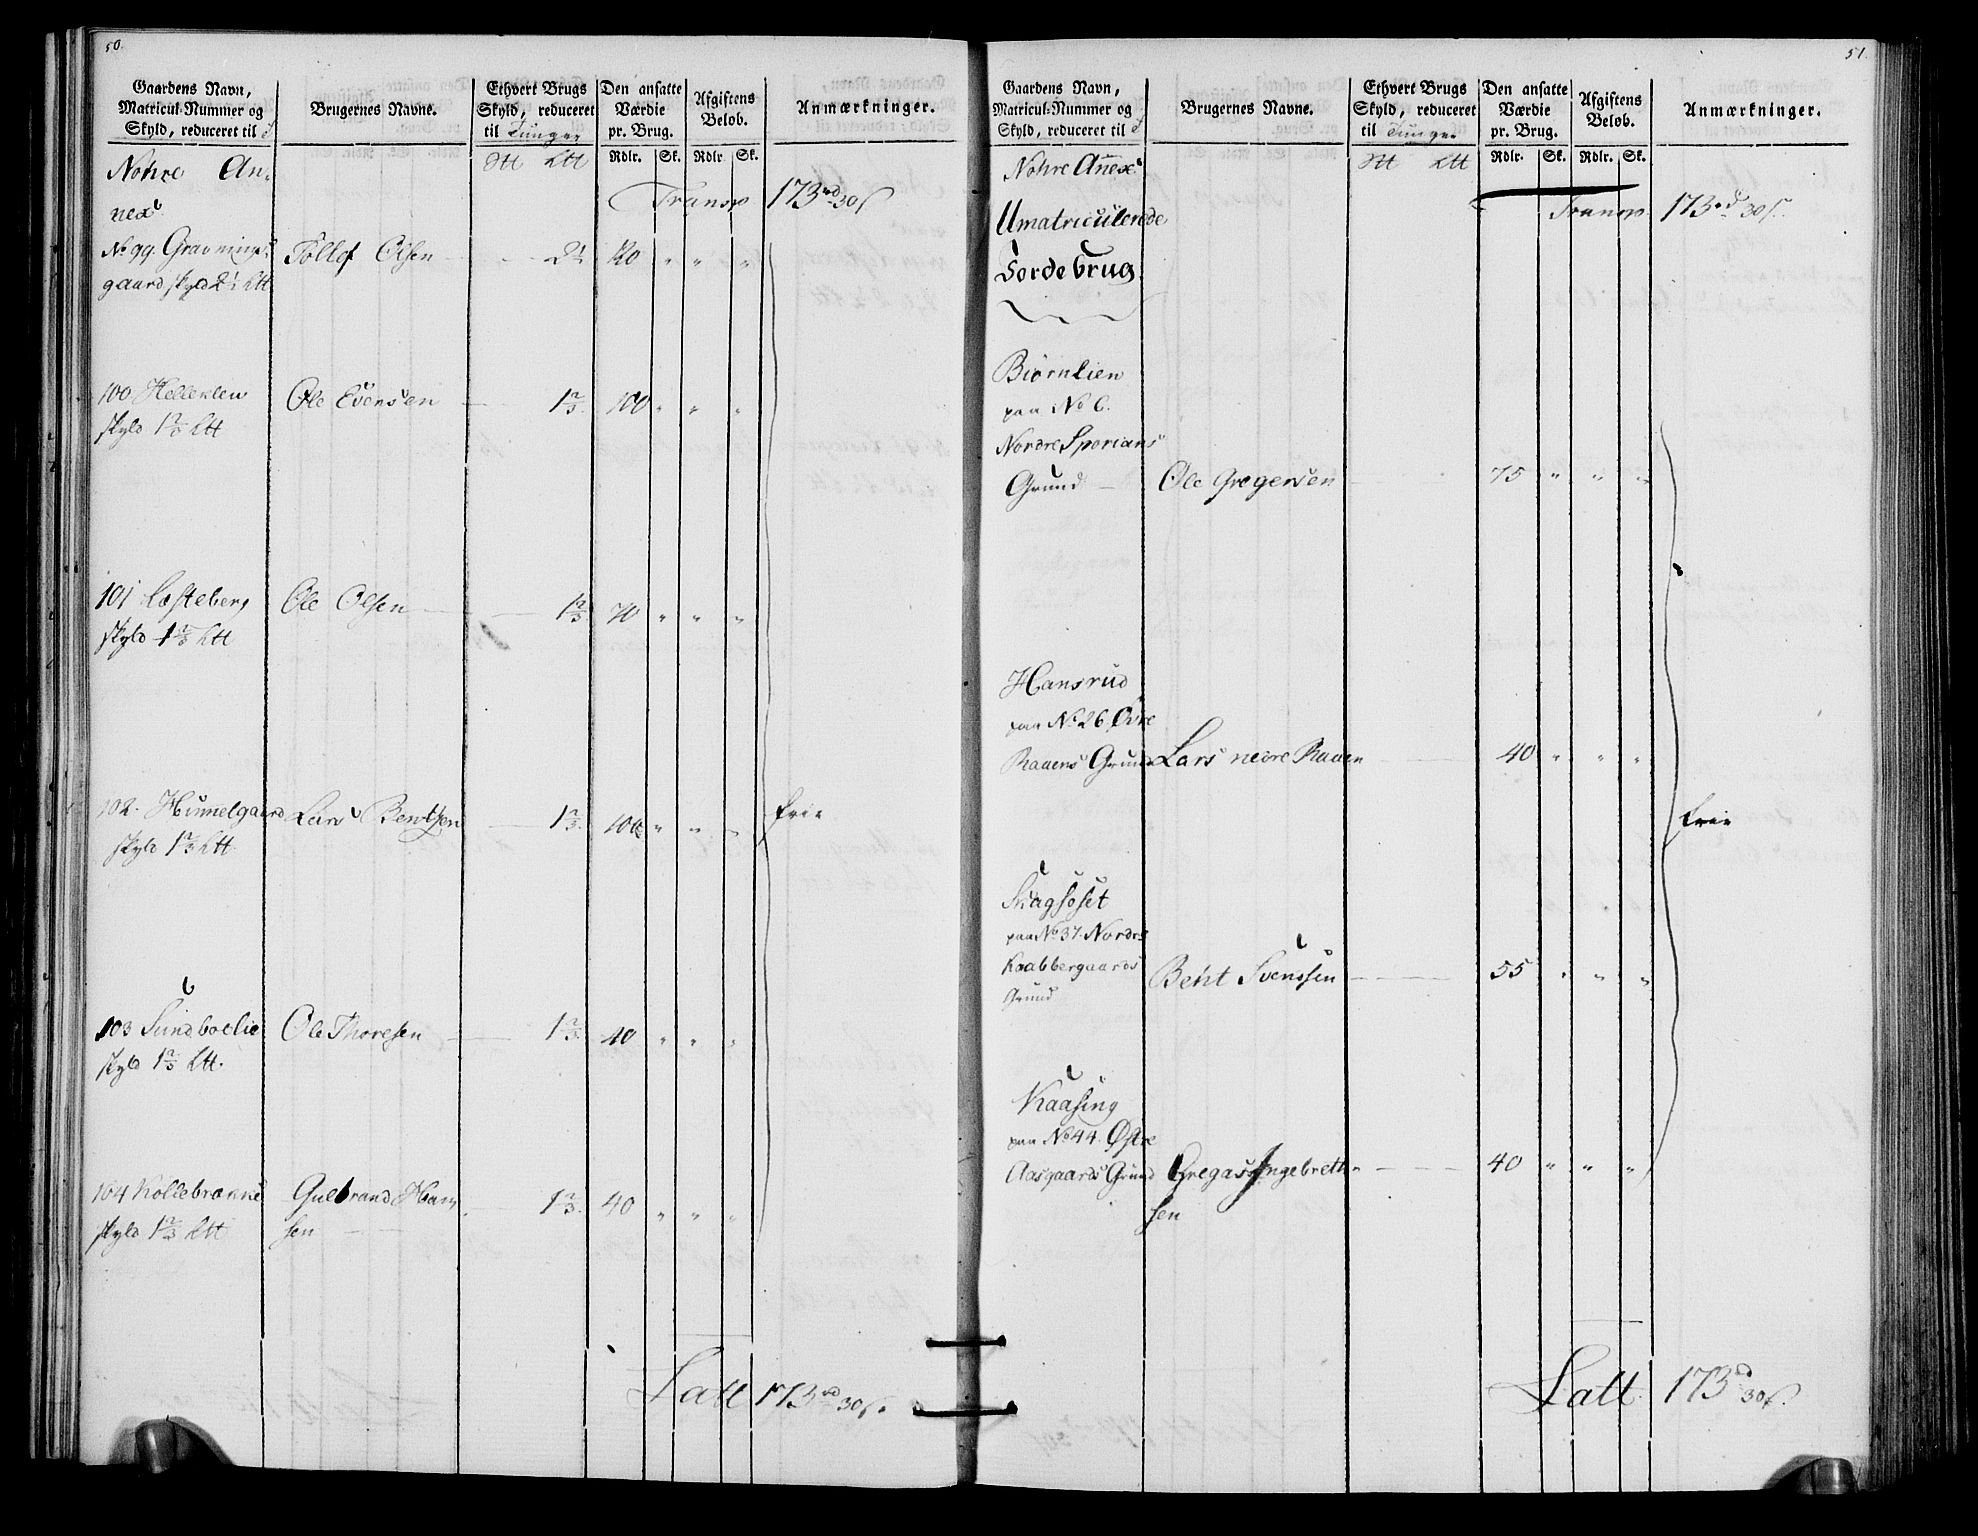 50.
Gaardens Navn,
Matricul-Nummer og
Skyld, reduceret til
Brugernes Navne.
Ethvert Brugs
Skyld, reduceret
til Tunger
Den ansatte
Værdie
pr. Brug.
Afgiftens
Beløb.
Anmærkninger.
Rdlr. Sk. Rdlr. Sk.
Nohre An-
nex
Transp 173 rd 30 s
No 99. Gravnings-
gaard skyld 2½ Ltt
Tollef Olsen 2½ 120 " " "
100 Helleklev
skyld 1⅔ Ltt
Ole Evensen 1⅔ 100 " " "
101 Løsteberg
skyld 1⅔ Ltt
Ole Olsen 1⅔ 70 " " "
102. Himmelgaard
skyld 1⅔ Ltt
Lars Bentsen 1⅔ 100 " " " frie
103 Sundbøelie
skyld 1⅔ Ltt.
Ole Thoresen 1⅔ 40 " " "
104 Kollebrække
skyld 1⅔ Ltt
Gulbrand Han-
sen 1⅔ 40 " " "
Latt 173 rd 30 s.
51.
Gaardens Navn,
Matricul-Nummer og
Skyld, reduceret til
Brugernes Navne.
Ethvert Brugs
Skyld, reduceret
til Tunger
Den ansatte
Værdie
pr. Brug.
Afgiftens
Beløb.
Anmærkninger.
Rdlr. Sk. Rdlr. Sk.
Nohre Annex
Transp. 173 rd 30 s.
Umatriculerede
Jordebrug.
Biørnlien
paa No 6.
Nordre Sperians
Grund Ole Gregersen 75 " " "
Hansrud
paa No 26 Øvre
Raaens Grund Lars nedre Raaen 40 " " "
frie
Skagsøset
paa No 37. Nordre
Kaabbergaards
Grund
Bent Svensen 55 " " "
Kaasing
paa No 44. Østre
Aasgaards Grund Gregas Ingebrett-
sen 40 " " "
Latt 173 rd 30 s.